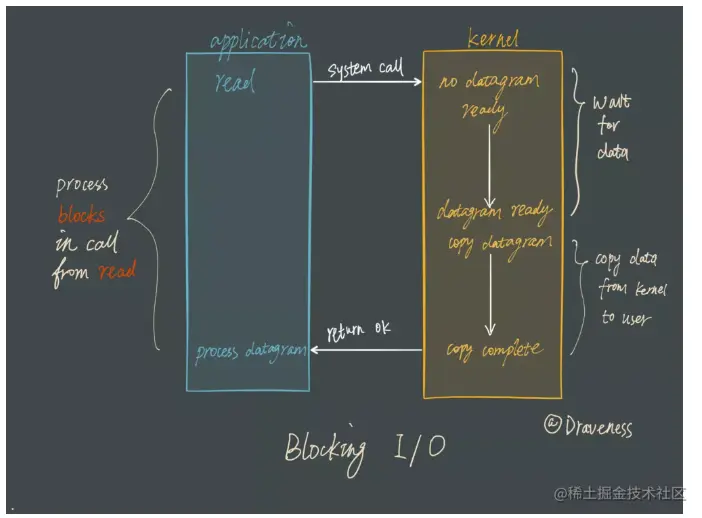 application
kernel
read
system call
no datagram
ready
wait
for
data
process
blocks
in call
from read
datagram ready
copy datagram
copy data
from kernel
to user
return ok
process datagram
copy complete
@Draveness
Blocking I/O
@稀土掘金技术社区